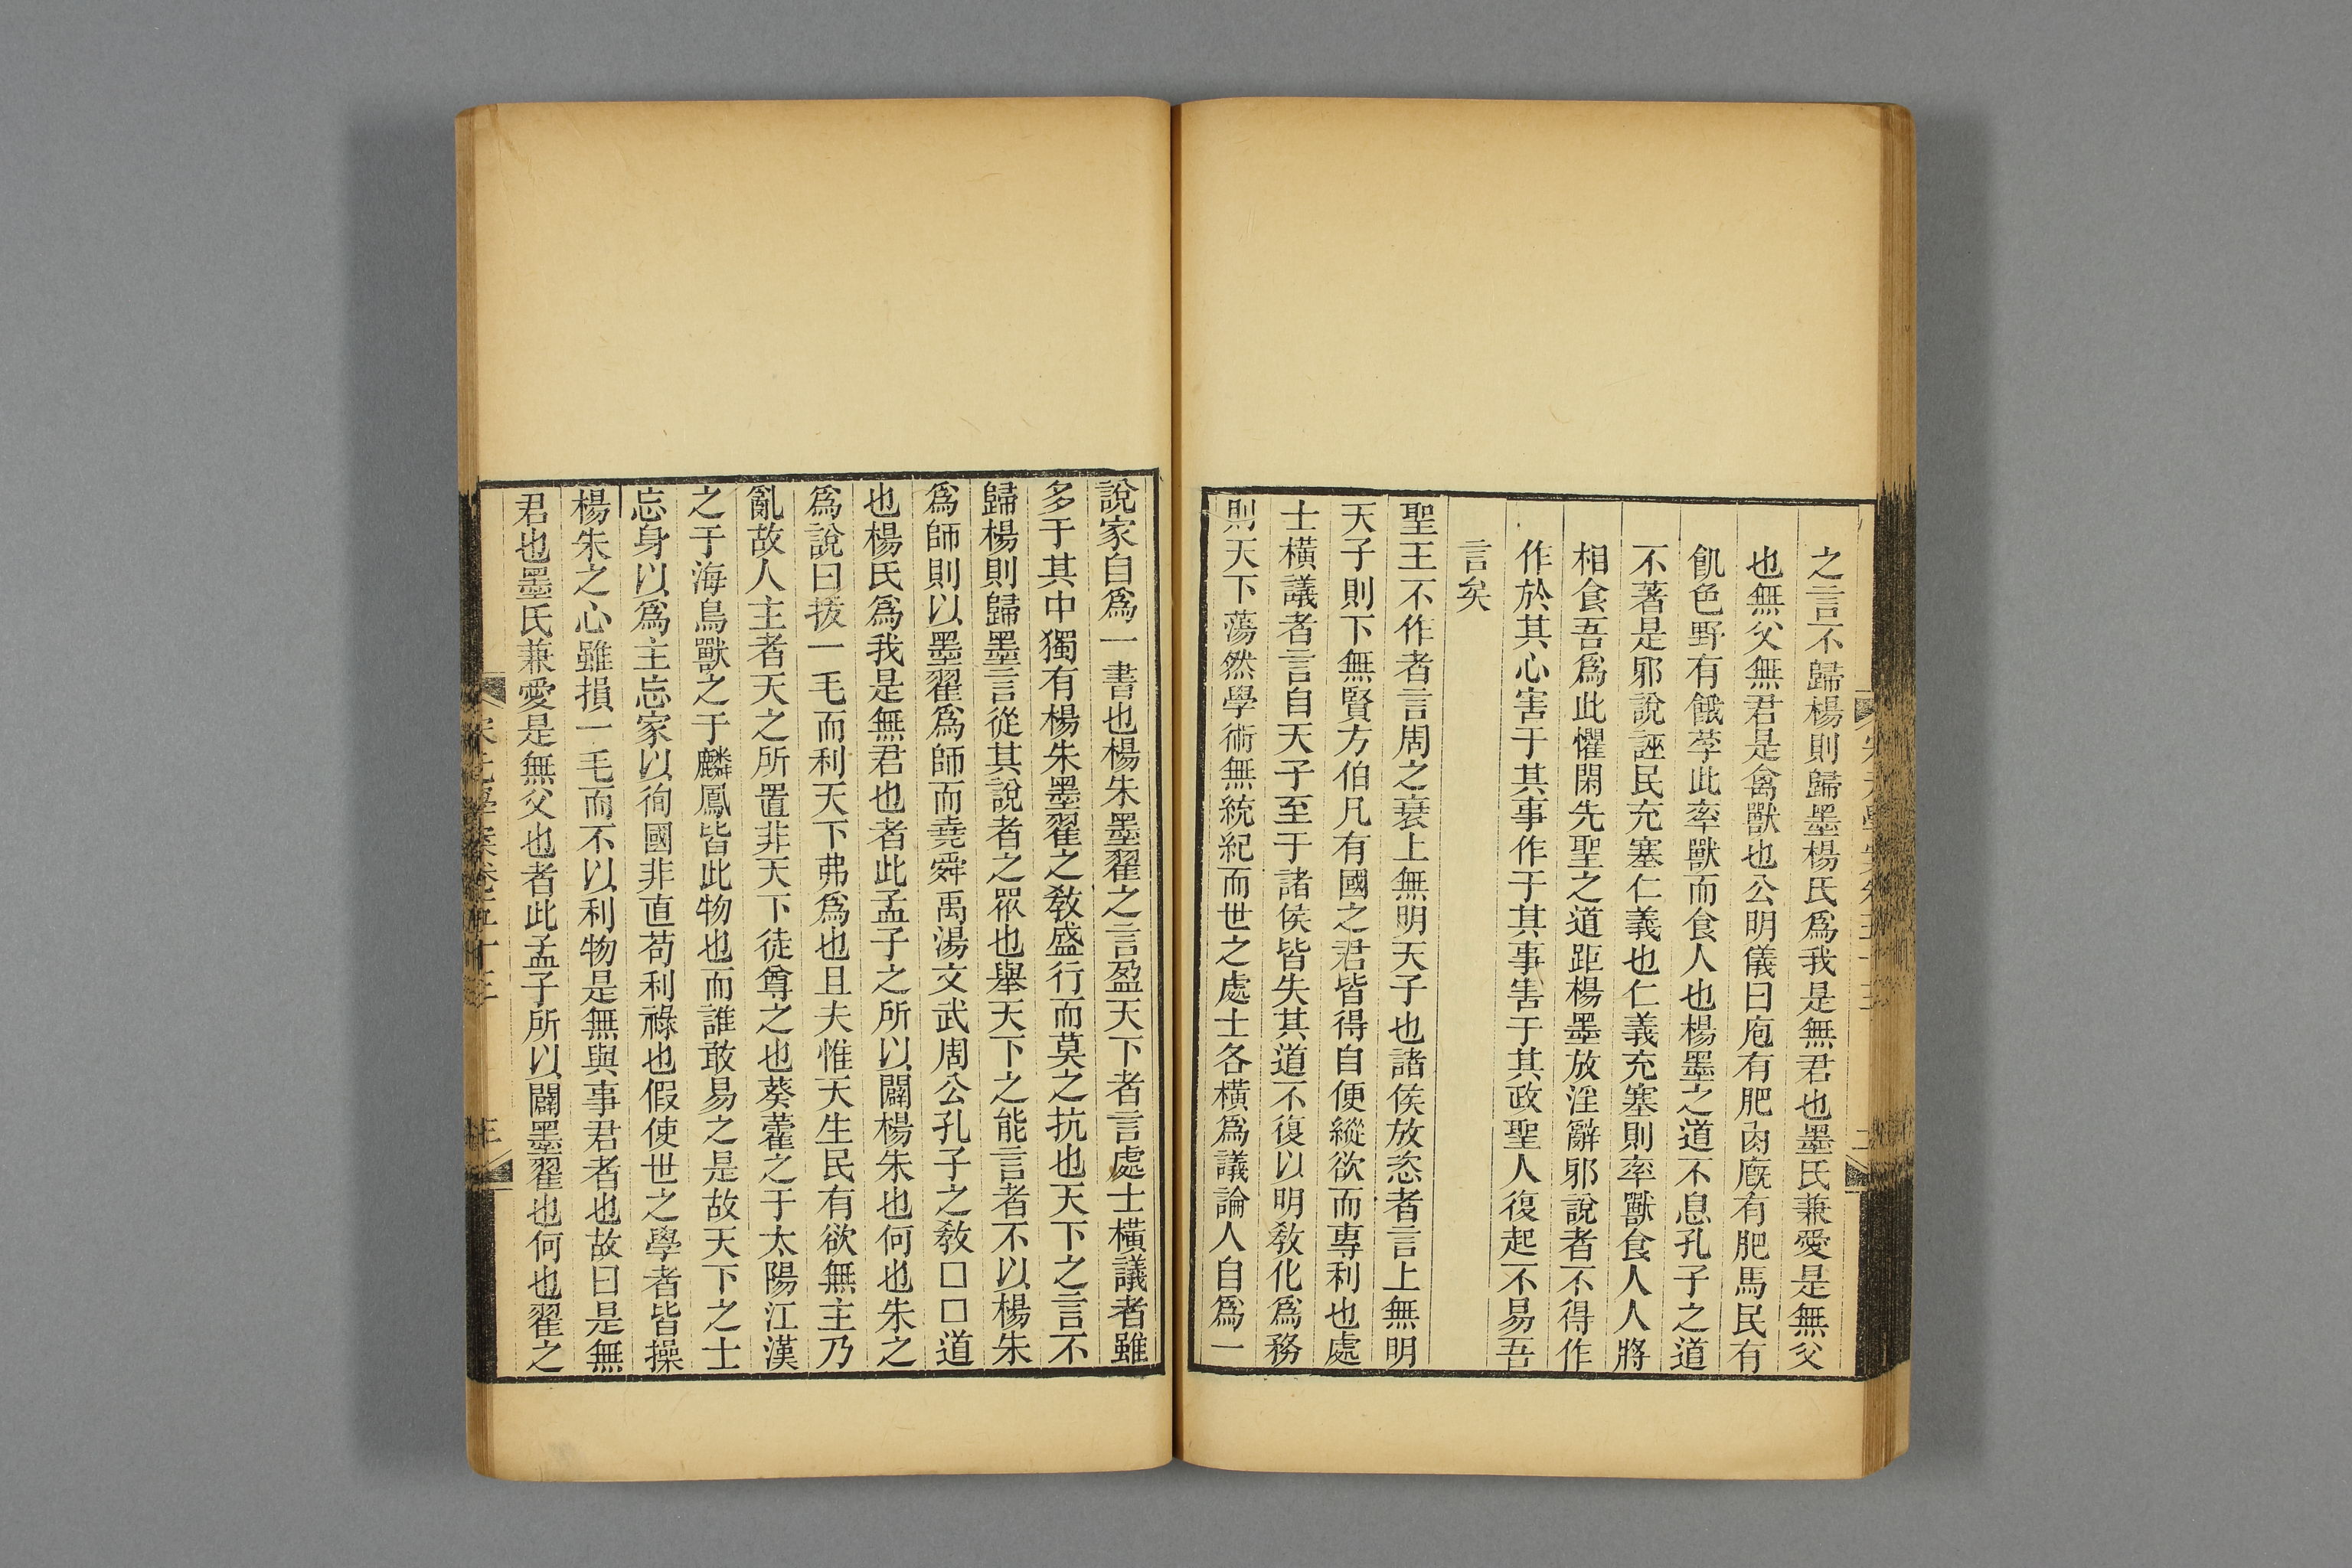 之言不歸楊則歸墨楊氏爲我是無君也墨氏兼愛是無父
也無父無君是禽獸也公明儀曰庖有肥肉廐有肥馬民有
飢色野有餓莩此率獸而食人也楊墨之道不息孔子之道
不著是邪說誣民充塞仁義也仁義充塞則率獸食人人將
相食吾爲此懼閑先聖之道距楊墨放淫辭邪說者不得作
作於其心害于其事作于其事害于其政聖人復起不易吾
言矣
聖王不作者言周之衰上無明天子也諸侯放恣者言上無明
天子則下無賢方伯凡有國之君皆得自便縱欲而專利也處
士橫議者言自天子至于諸侯皆失其道不復以明敎化爲務
則天下蕩然學術無統紀而世之處士各橫爲議論人自爲一
說家自爲一書也楊朱墨翟之言盈天下者言處士橫議者雖
多于其中獨有楊朱墨翟之敎盛行而莫之抗也天下之言不
歸楊則歸墨言從其說者之眾也舉天下之能言者不以楊朱
爲師則以墨翟爲師而堯舜禹湯文武周公孔子之敎□□道
也楊氏爲我是無君也者此孟子之所以闢楊朱也何也朱之
爲說曰拔一毛而利天下弗爲也且夫惟天生民有欲無主乃
亂故人主者天之所置非天下徒尊之也葵藿之于太陽江漢
之于海鳥獸之于麟鳳皆此物也而誰敢易之是故天下之士
忘身以爲主忘家以徇國非直苟利祿也假使世之學者皆操
楊朱之心雖損一毛而不以利物是無與事君者也故曰是無
君也墨氏兼愛是無父也者此孟子所以闢墨翟也何也翟之
宋元學案卷五十三
三